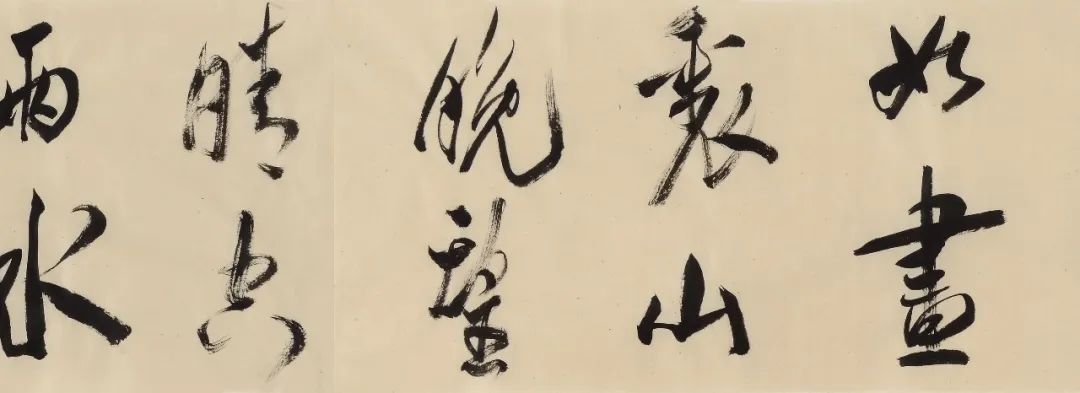 如畫
裏山
晚望
晴空
兩水